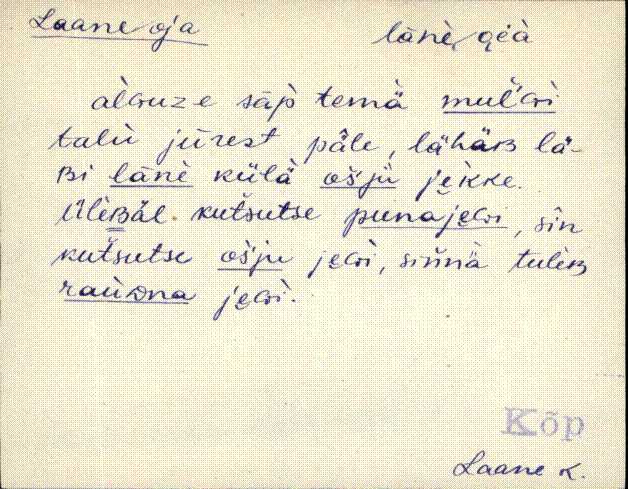 Laane oja lāne, o̬i̯à
alguze sāb temä mul'gi
talu jūrest pǟle, lähäʙ lä-
ʙi lāne külä ošju jekke.
Üleʙäl kutsutse punajegi, sīn
kutsutse ošju jegi, sinnä tuleʙ
raudna jegi.
Kõp
Laane k.